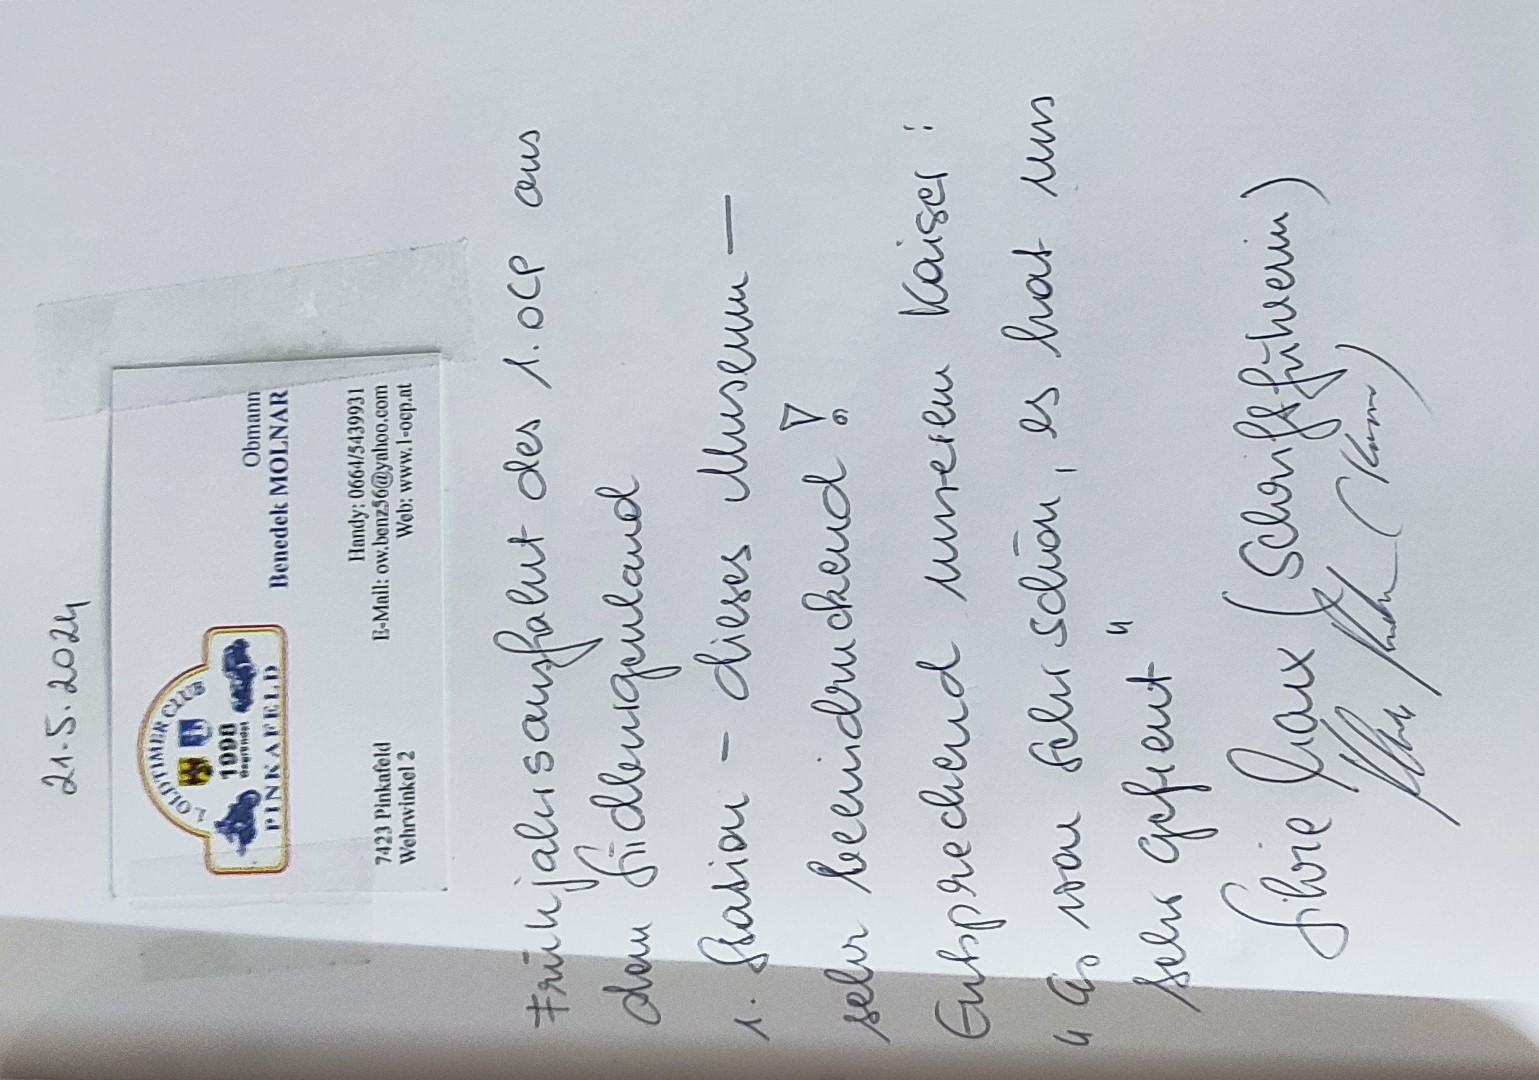 21.5.2024
1. OLDTIMER CLUB
1990
PINKAFELD
Obmann
Benedek MOLNAR
7423 Pinkafeld
Wehrwinkel 2
Handy: 0664/5439931
E-Mail: ow.benz56@yahoo.com
Web: www.1-ocp.at
Frühjahrsausfahrt des 1. OCP aus
dem Südburgenland
1. Station – dieses Museum –
sehr beeindruckend!
Entsprechend unserem Kaiser:
"Es war sehr schön, es hat uns
sehr gefreut"
Silvie (Schriftführerin)